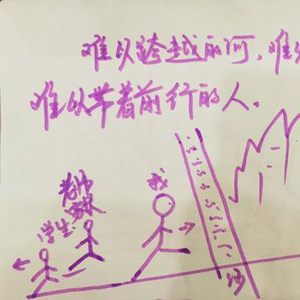 难以跨越的河、难
难以带着前行的人。
老师
家长
学生
我